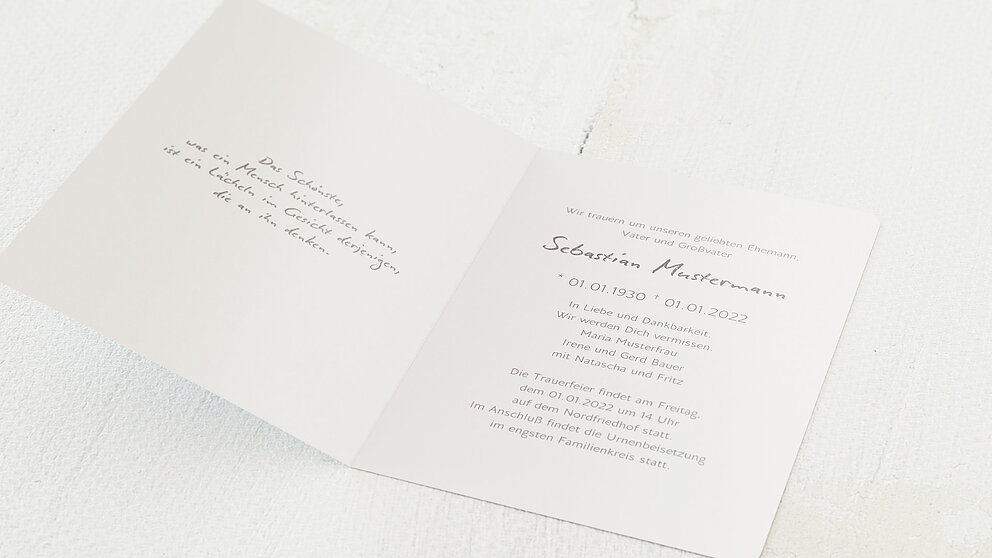 Das Schönste,
was ein Mensch hinterlassen kann,
ist ein Lächeln im Gesicht derjenigen,
die an ihn denken.
Wir trauern um unseren geliebten Ehemann.
Vater und Großvater
Sebastian Mustermann
* 01.01.1930 † 01.01.2022
In Liebe und Dankbarkeit.
Wir werden Dich vermissen.
Maria Musterfrau
Irene und Gerd Bauer
mit Natascha und Fritz
Die Trauerfeier findet am Freitag,
dem 01.01.2022 um 14 Uhr
auf dem Nordfriedhof statt.
Im Anschluß findet die Urnenbeisetzung
im engsten Familienkreis statt.